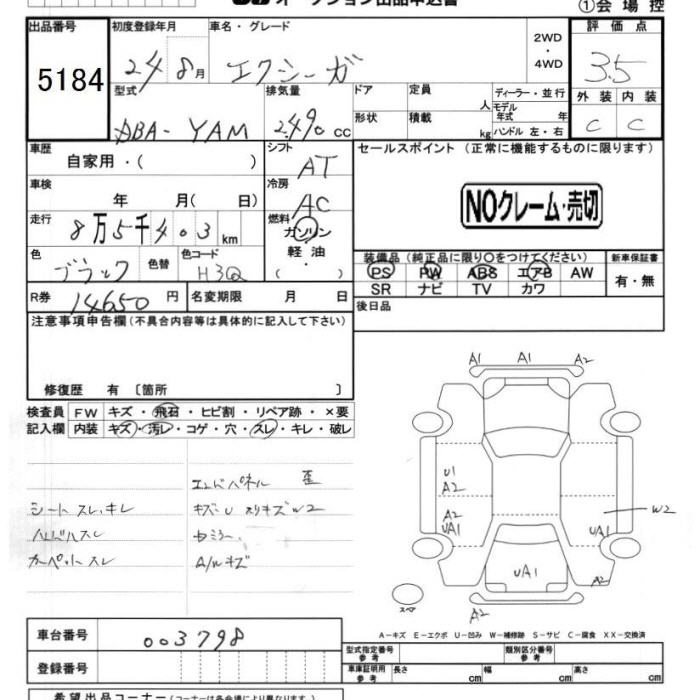 オークション出品申込書
①会場控
出品番号 初度登録年月 車名・グレード 2WD・4WD 評価点
5184 24 8月 エクシーガ 3.5
型式 排気量 ドア 定員 人 ディーラー・並行 外装 内装
ABA-YAM 2490 cc 形状 積載 kg モデル年式 年式 ハンドル 左・右 C C
車歴 シフト セールスポイント (正常に機能するものに限ります)
自家用・( ) AT
車検 冷房
年 月( 日) AC NOクレーム・売切
走行 燃料
8万5千403km ガソリン
色 色替 色コード 軽油・ 装備品(純正品に限り○をつけてください) 新車保証書
ブラック H3Q ( ) PS PW ABS エアB AW 有・無
SR ナビ TV カワ
R券 14650円 名変期限 月 日 後日品
注意事項申告欄(不具合内容等は具体的に記入して下さい)
修復歴 有 〔箇所 〕
A1 A1 A2
検査員記入欄 FW キズ・飛石・ヒビ割・リペア跡・×要
内装 キズ・汚レ・コゲ・穴・スレ・キレ・破レ
エンドパネル 歪
シートスレ、キレ キズ・U スリキズW2
ハンドルスレ
カーペットスレ A/Wキズ
U1
A2
A2
UA1
UA1
W2
UA1
A2
スペア
A2
A-キズ E-エクボ U-凹み W-補修跡 S-サビ C-腐食 XX-交換済
車台番号 003798
型式指定番号 参考 類別区分番号 参考
登録番号 車庫証明用 参考 長さ cm 幅 cm 高さ cm
希望出品コーナー(コーナーは各会場により異なります)